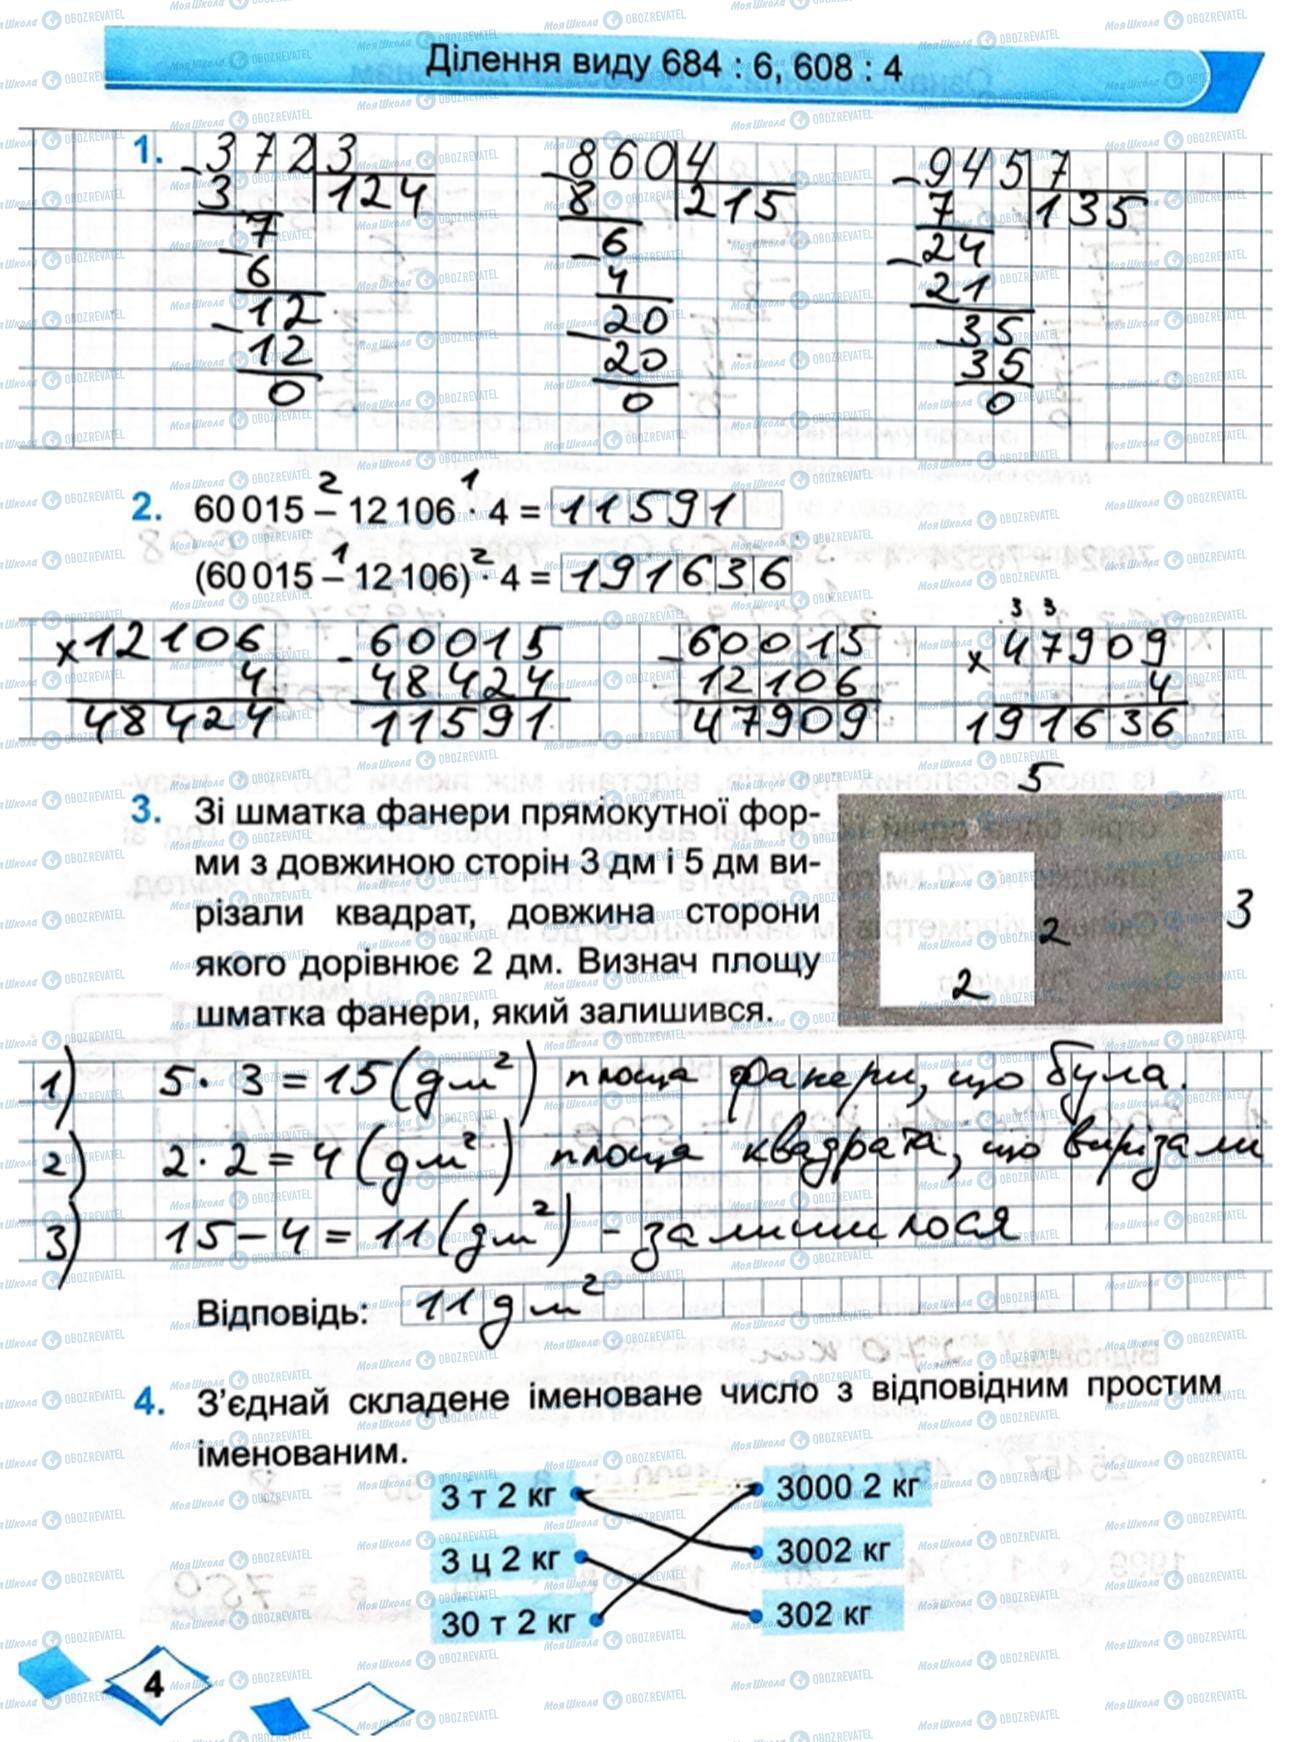 Ділення виду 684 : 6, 608 : 4
1. -372|3 -860|4 -945|7
3 |124 8 |215 7 |135
-7 -6 -24
6 4 21
-12 -20 -35
12 20 35
0 0 0
2 1
2. 60 015 – 12 106 · 4 = 11591
1 2
(60 015 – 12 106) · 4 = 191636
3 3
×12106 -60015 -60015 ×47909
4 48424 12106 4
48424 11591 47909 191636
5
3. Зі шматка фанери прямокутної фор-
ми з довжиною сторін 3 дм і 5 дм ви-
різали квадрат, довжина сторони
якого дорівнює 2 дм. Визнач площу
шматка фанери, який залишився.
2
3
2
1) 5 · 3 = 15 (дм²) площа фанери, що була.
2) 2 · 2 = 4 (дм²) площа квадрата, що вирізали
3) 15 – 4 = 11 (дм²) - залишилося
Відповідь: 11 дм²
4. З’єднай складене іменоване число з відповідним простим
іменованим.
3 т 2 кг 3000 2 кг
3 ц 2 кг 3002 кг
30 т 2 кг 302 кг
4
МояШкола OBOZREVATEL